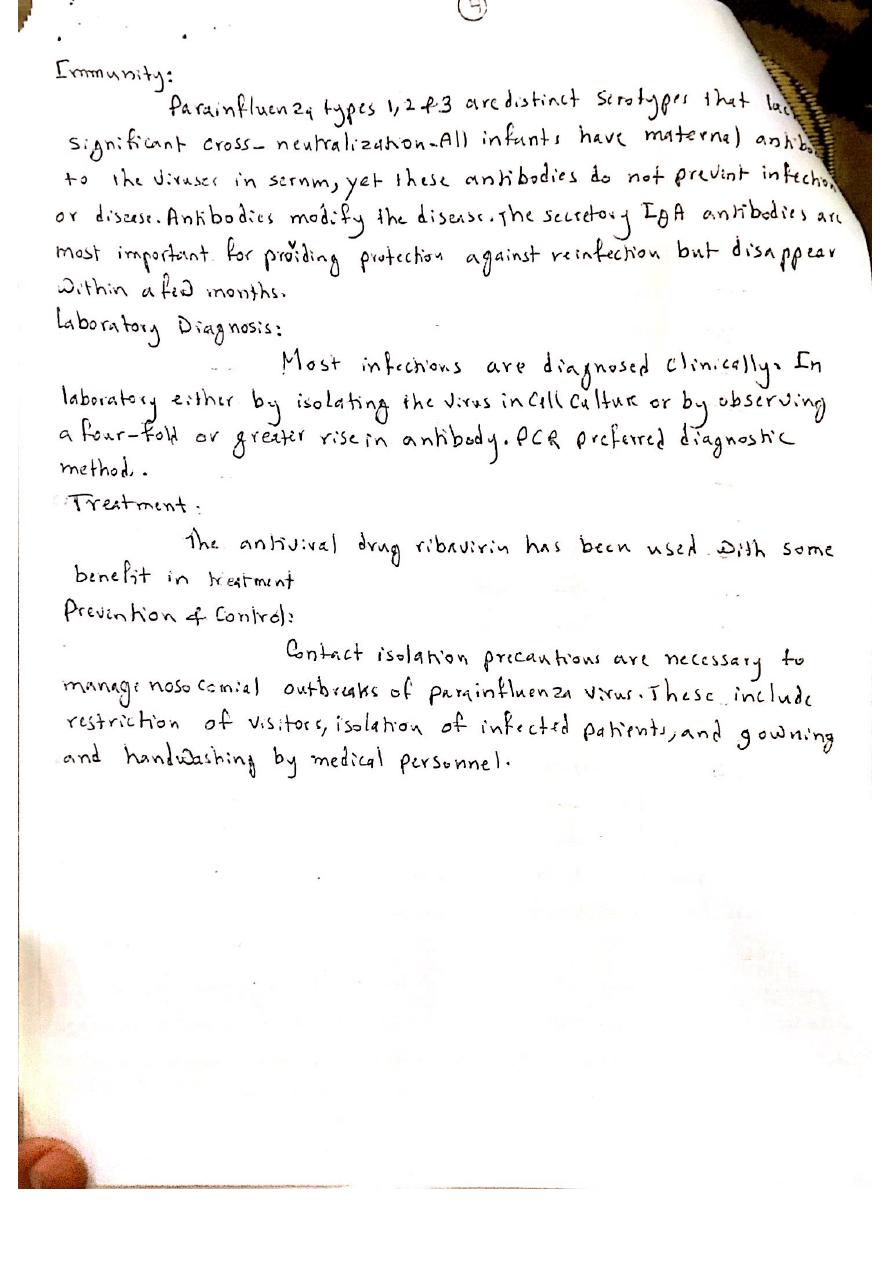 4
Immunity:
Parainfluenza types 1, 2 & 3 are distinct serotypes that lac
significant cross- neutralization. All infants have maternal antibo
to the viruses in serum, yet these antibodies do not prevent infectio
or disease. Antibodies modify the disease. The secretory IgA antibodies are
most important for providing protection against reinfection but disappear
within a few months.
Laboratory Diagnosis:
Most infections are diagnosed clinically. In
laboratory either by isolating the virus in cell culture or by observing
a four-fold or greater rise in antibody. PCR preferred diagnostic
method.
Treatment:
The antiviral drug ribavirin has been used with some
benefit in treatment
Prevention & Control:
Contact isolation precautions are necessary to
manage nosocomial outbreaks of parainfluenza virus. These include
restriction of visitors, isolation of infected patients, and gowning
and handwashing by medical personnel.